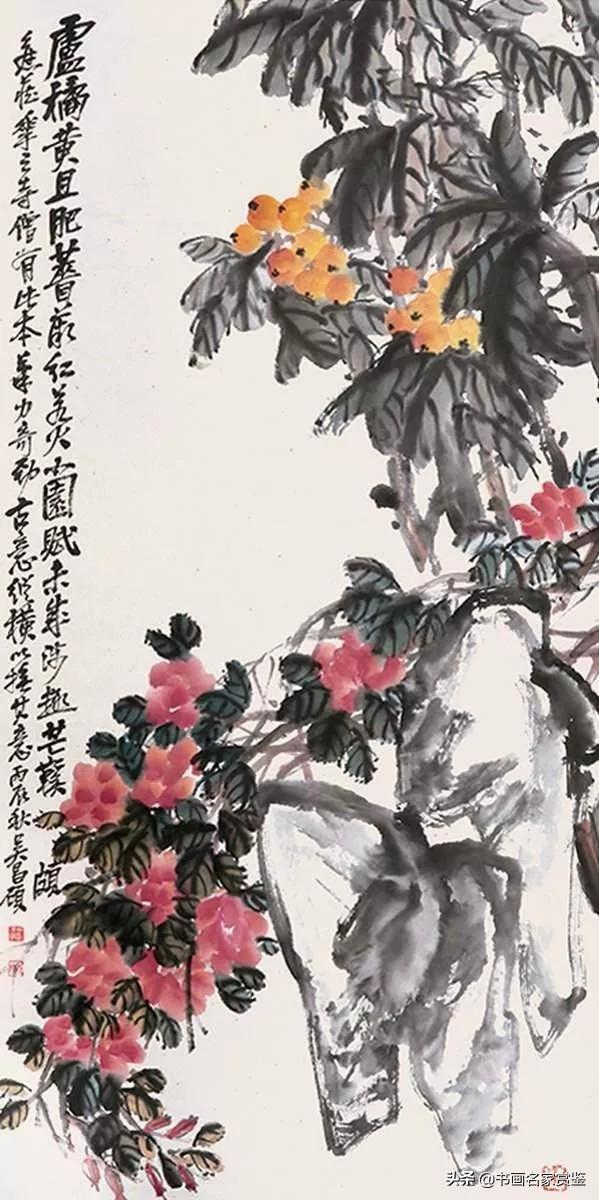 盧橘黃且肥薔薇紅若火小園賦未成涉趣芒鞵頗
華之寺僧有此本筆力奇勁古意縱橫以擬其意丙辰秋吳昌碩
头条@书画名家赏鉴